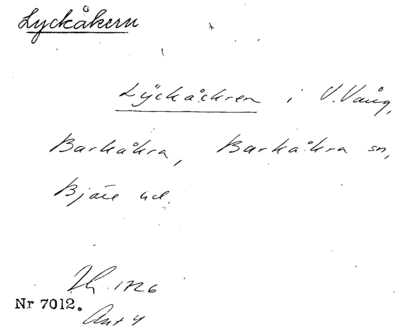 Lyckåkern
Lyckåckren i V. Vång,
Barkåkra, Barkåkra sn,
Bjäre hd.
Jb. 1726
Nr 7012.
Ant 4